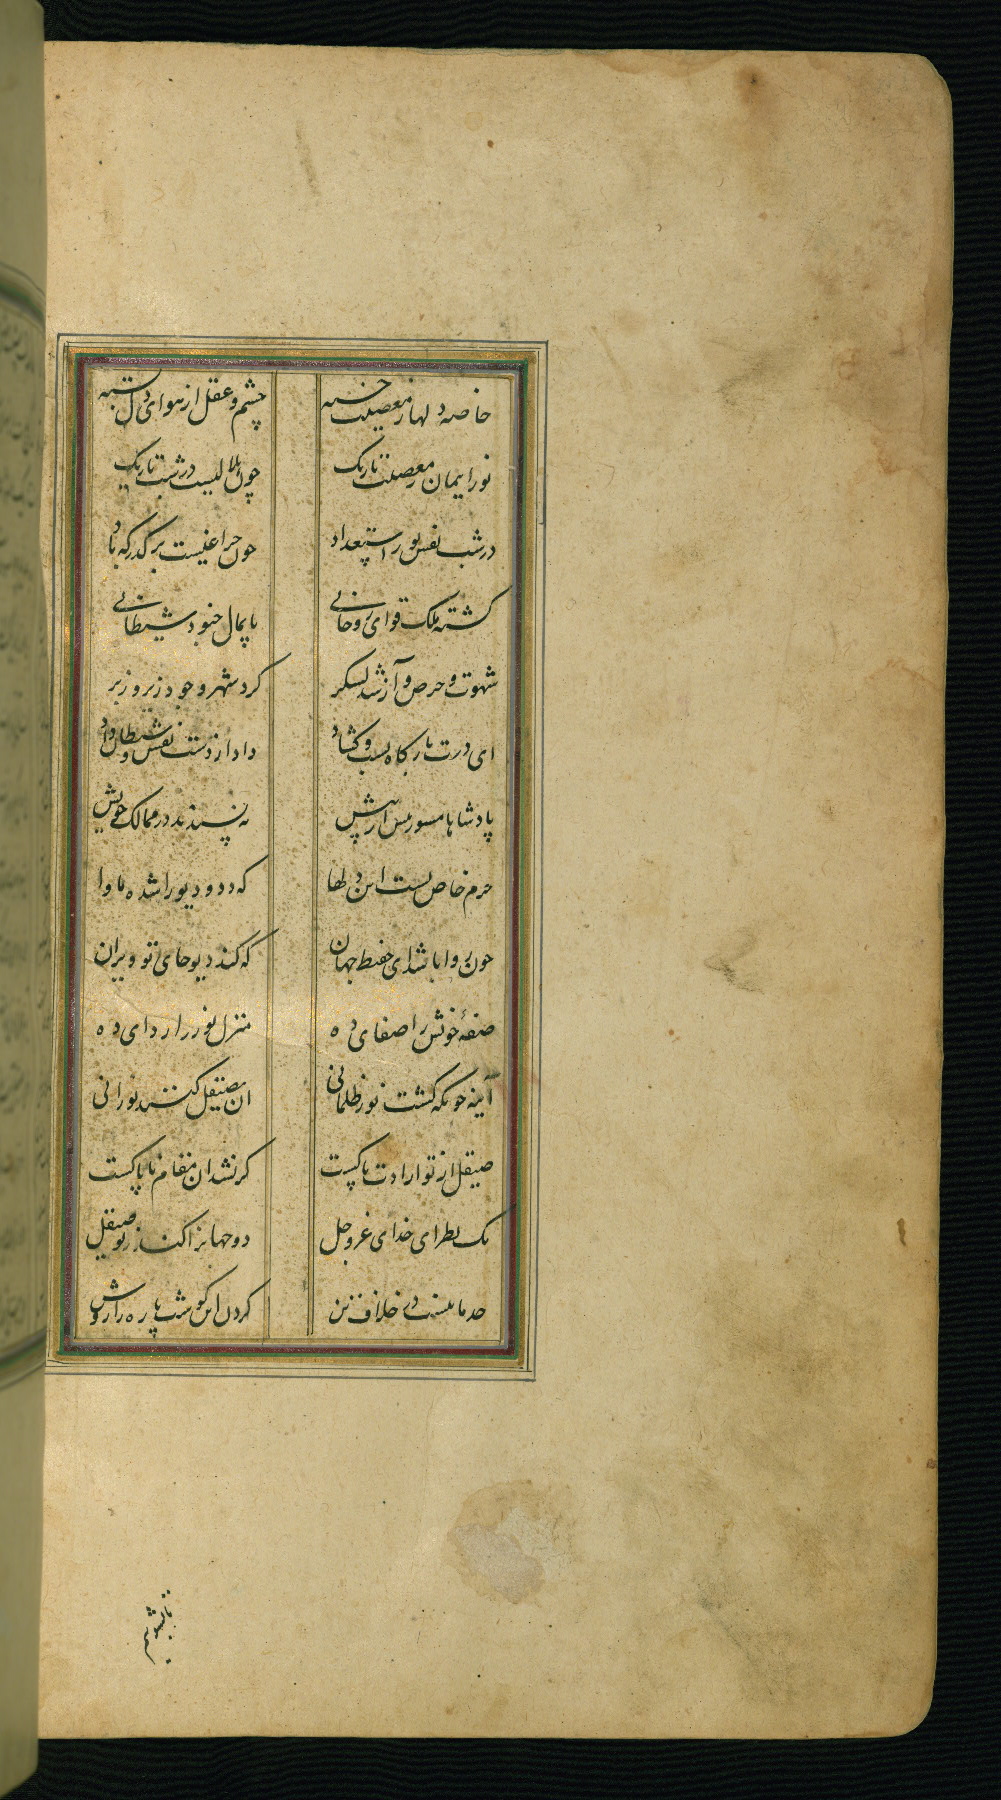 خاصه دلها ز معصیت خسته چشم و عقل از هوای دل بسته
نور ایمان ز معصیت تاریک چون هلالیست در شب تاریک
در شب نفس نور استعداد چون چراغیست بر گذرگه باد
گشته ملک قوای روحانی پایمال جنود شیطانی
شهوت و حرص و آز شد لشکر کرد شهر وجود زیر و زبر
ای درت بارگاه بست و گشاد داد از دست نفس و شیطان داد
پادشاها نپسندند در ممالک خویش
حرم خاص تست این دلها که دد و دیو را شده ماوا
چون روا باشد ای حفیظ جهان که کند دیو جای تو ویران
صفهٔ خویش را صفای ده منزل نور را ردای ده
آینه چونکه گشت نور ظلمانی از صیقل کنند نورانی
صیقل از نو ارادت پاکست گر نشد آن مقام ناپاکست
یک نظر ای خدای عز و جل دو جهانرا کند ز نو صیقل
خلاف زدن گردن این گوشت پاره را
تا بشویم